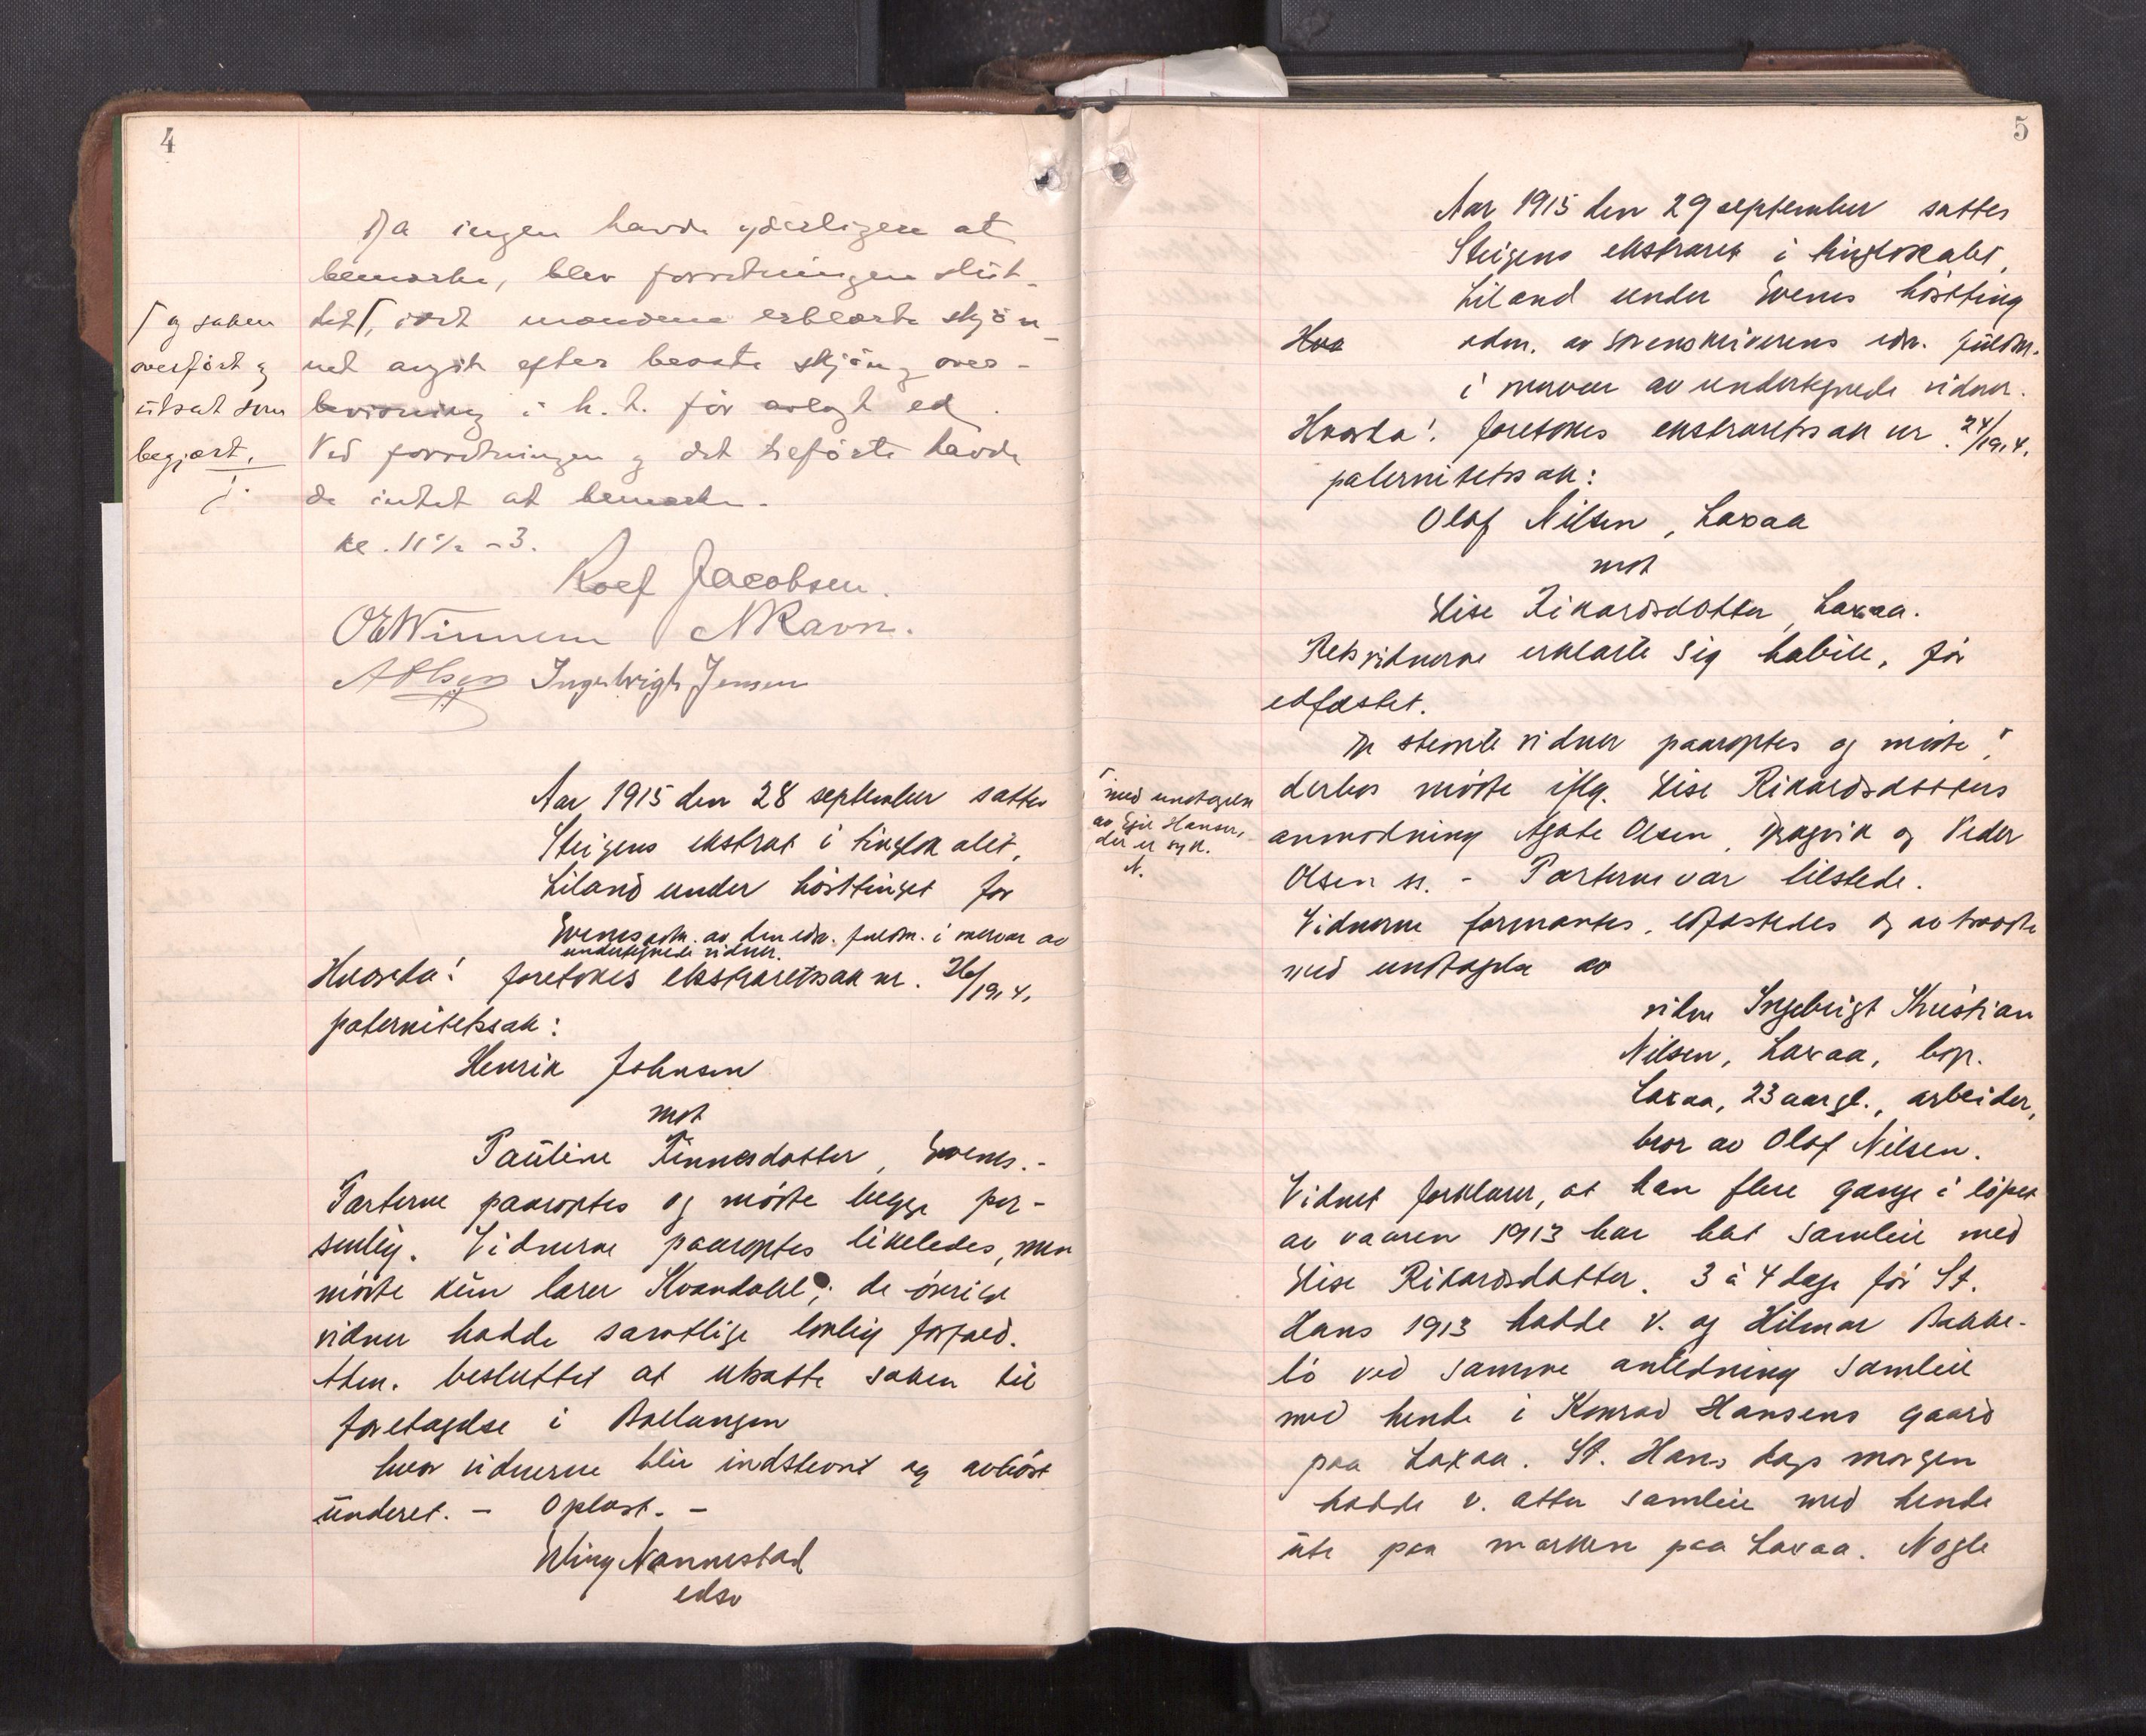 4
Da ingen havde yderligere at
bemærke, blev forretningen slut-
tet⌈, idet mændene erklærte skjøn-
net avgit efter bedste skjøn og over-
bevisning i h. t. før avlagt ed.
Ved forretningen og det tilførte havde
de intet at bemærke.
Kl. 11 1/2 - 3.
⌈ og saken
overført og
utsat som
begjært.
J.
Rolf Jacobsen.
OEWinnem NRavn.
AOlsen Ingebrigt Jensen
Aar 1915 den 28 september sattes
Steigens ekstraret i tinglokalet,
Liland under høsttinget for
Evenes adm. av den edsv. fuldm. i nærvær av
undertegnede vidner.
Hvorda! foretokes ekstraretssak nr. 26/1914,
paternitetssak:
Henrik Johnsen
mot
Pauline Finnesdatter, Evenes.-
Parterne paaroptes og møtte begge per-
sonlig. Vidnerne paaroptes likeledes, men
møtte kun lærer Kvandahl; de øvrige
vidner hadde samtlige lovlig forfald.
Adm. besluttet at utsætte saken til
foretagelse i Ballangen
hvor vidnerne blir indstevnt og avhørt
underet. - Oplæst. -
Erling Nannestad
edsv
5
Aar 1915 den 29 september sattes
Steigens ekstraret i tinglokalet,
Liland under Evenes høstting
Hvo adm. av sorenskriverens edsv. fuldm.
i nærvær av undertegnede vidner.
Hvorda! foretokes ekstraretssak nr. 24/1914,
paternitetssak:
Olaf Nilsen, Laxaa
mot
Elise Rikardsdatter, Laxaa.
Retsvidnerne erklærte sig habile, før
edfæstet.
De stevnte vidner paaroptes og møtte⌈,
derhos møtte iflg. Elise Rikardsdatters
anmodning Agate Olsen, og Peder
Olsen s. - Parterne var tilstede.
⌈ med undtagelse
av Egil Hansen,
der er syk.
N.
Vidnerne formantes, edfæstedes og avtraadte
med undtagelse av
vidne Ingebrigt Kristian
Nilsen, Laxaa, bop.
Laxaa, 23 aar gl., arbeider,
bror av Olaf Nilsen.
Vidnet forklarer, at han flere gange i løpet
av vaaren 1913 har hat samleie med
Elise Rikardsdatter. 3 à 4 dage før St.
Hans 1913 hadde v. og Hilmar Bakke-
bø ved samme anledning samleie
med hende i Konrad Hansens gaard
paa Laxaa. St. Hans dags morgen
hadde v. atter samleie med hende
ute paa marken paa Laxaa. Nogle